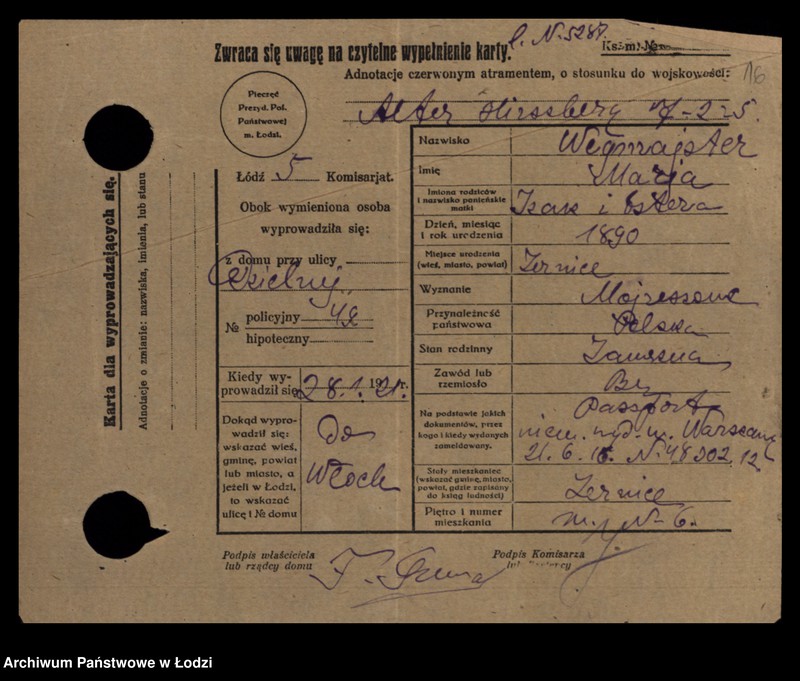 Zwraca się uwagę na czytelne wypełnienie karty.
l. N. 5287.
Ks. m. №
16
Adnotacje czerwonym atramentem, o stosunku do wojskowości:
Alter Hirszberg 17-2-5.
Pieczęć
Prezyd. Pol.
Państwowej
m. Łodzi.
Karta dla wyprowadzających się.
Adnotacje o zmianie: nazwiska, imienia, lub stanu
Łódź 5 Komisarjat.
Obok wymieniona osoba
wyprowadziła się:
z domu przy ulicy
Dzielnej
№ policyjny 42
hipoteczny
Kiedy wy-
prowadził się 28.1.1921. r.
Dokąd wypro-
wadził się:
wskazać wieś,
gminę, powiat
lub miasto, a
jeżeli w Łodzi,
to wskazać
ulicę i № domu
do
Włoch
Nazwisko Wegmajster
Imię Marja
Imiona rodziców
i nazwisko panieńskie
matki
Izak i Estera
Dzień, miesiąc
i rok urodzenia
1890
Miejsce urodzenia
(wieś, miasto, powiat)
Żernice
Wyznanie Mojżeszowe
Przynależność
państwowa
Polska
Stan rodzinny Zamężna
Zawód lub
rzemiosło
Na podstawie jakich
dokumentów, przez
kogo i kiedy wydanych
zameldowany.
Passport
niem. wyd. w. Warszawy
21. 6. 16. N 48302.12
Stały mieszkaniec
(wskazać gminę, miasto,
powiat, gdzie zapisany
do ksiąg ludności)
Żernice
Piętro i numer
mieszkania
m. N 6.
Podpis właściciela
lub rządcy domu
Podpis Komisarza
lub
Archiwum Państwowe w Łodzi